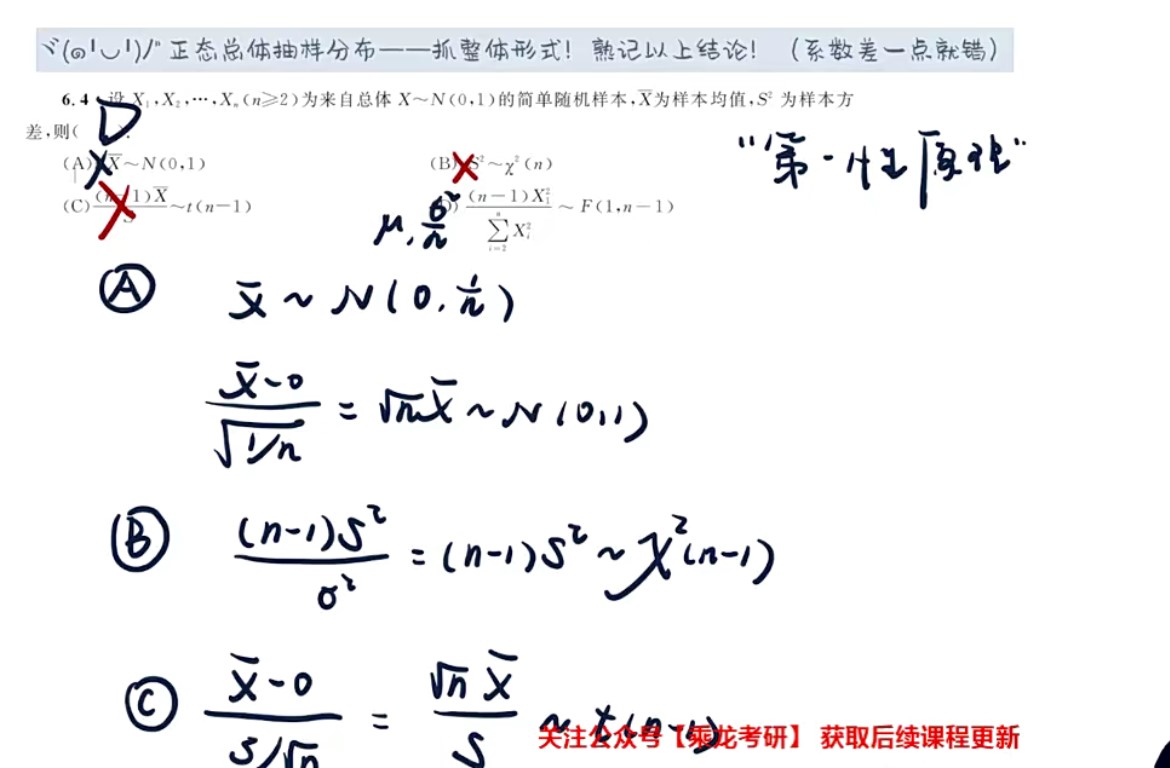 ヾ(๑╹◡╹)ﾉ" 正态总体抽样分布——抓整体形式！熟记以上结论！（系数差一点就错）
6.4 设 X₁,X₂,⋯,Xₙ(n≥2)为来自总体 X~N(0,1)的简单随机样本,X̄为样本均值,S² 为样本方
差,则( D ).
(A) X̄~N(0,1) (B) S²~χ²(n)
(C) (n-1)X̄/S ~t(n-1) (D) (n-1)X₁²/∑ᵢ₌₂ⁿ Xᵢ² ~ F(1,n-1)
"第一性原理"
μ, σ²/n
Ⓐ X̄ ~ N(0, 1/n)
(X̄-0)/√(1/n) = √n X̄ ~ N(0,1)
Ⓑ (n-1)S²/σ² = (n-1)S² ~ χ²(n-1)
Ⓒ (X̄-0)/(S/√n) = √n X̄/S ~ t(n-1)
关注公众号【乘龙考研】获取后续课程更新